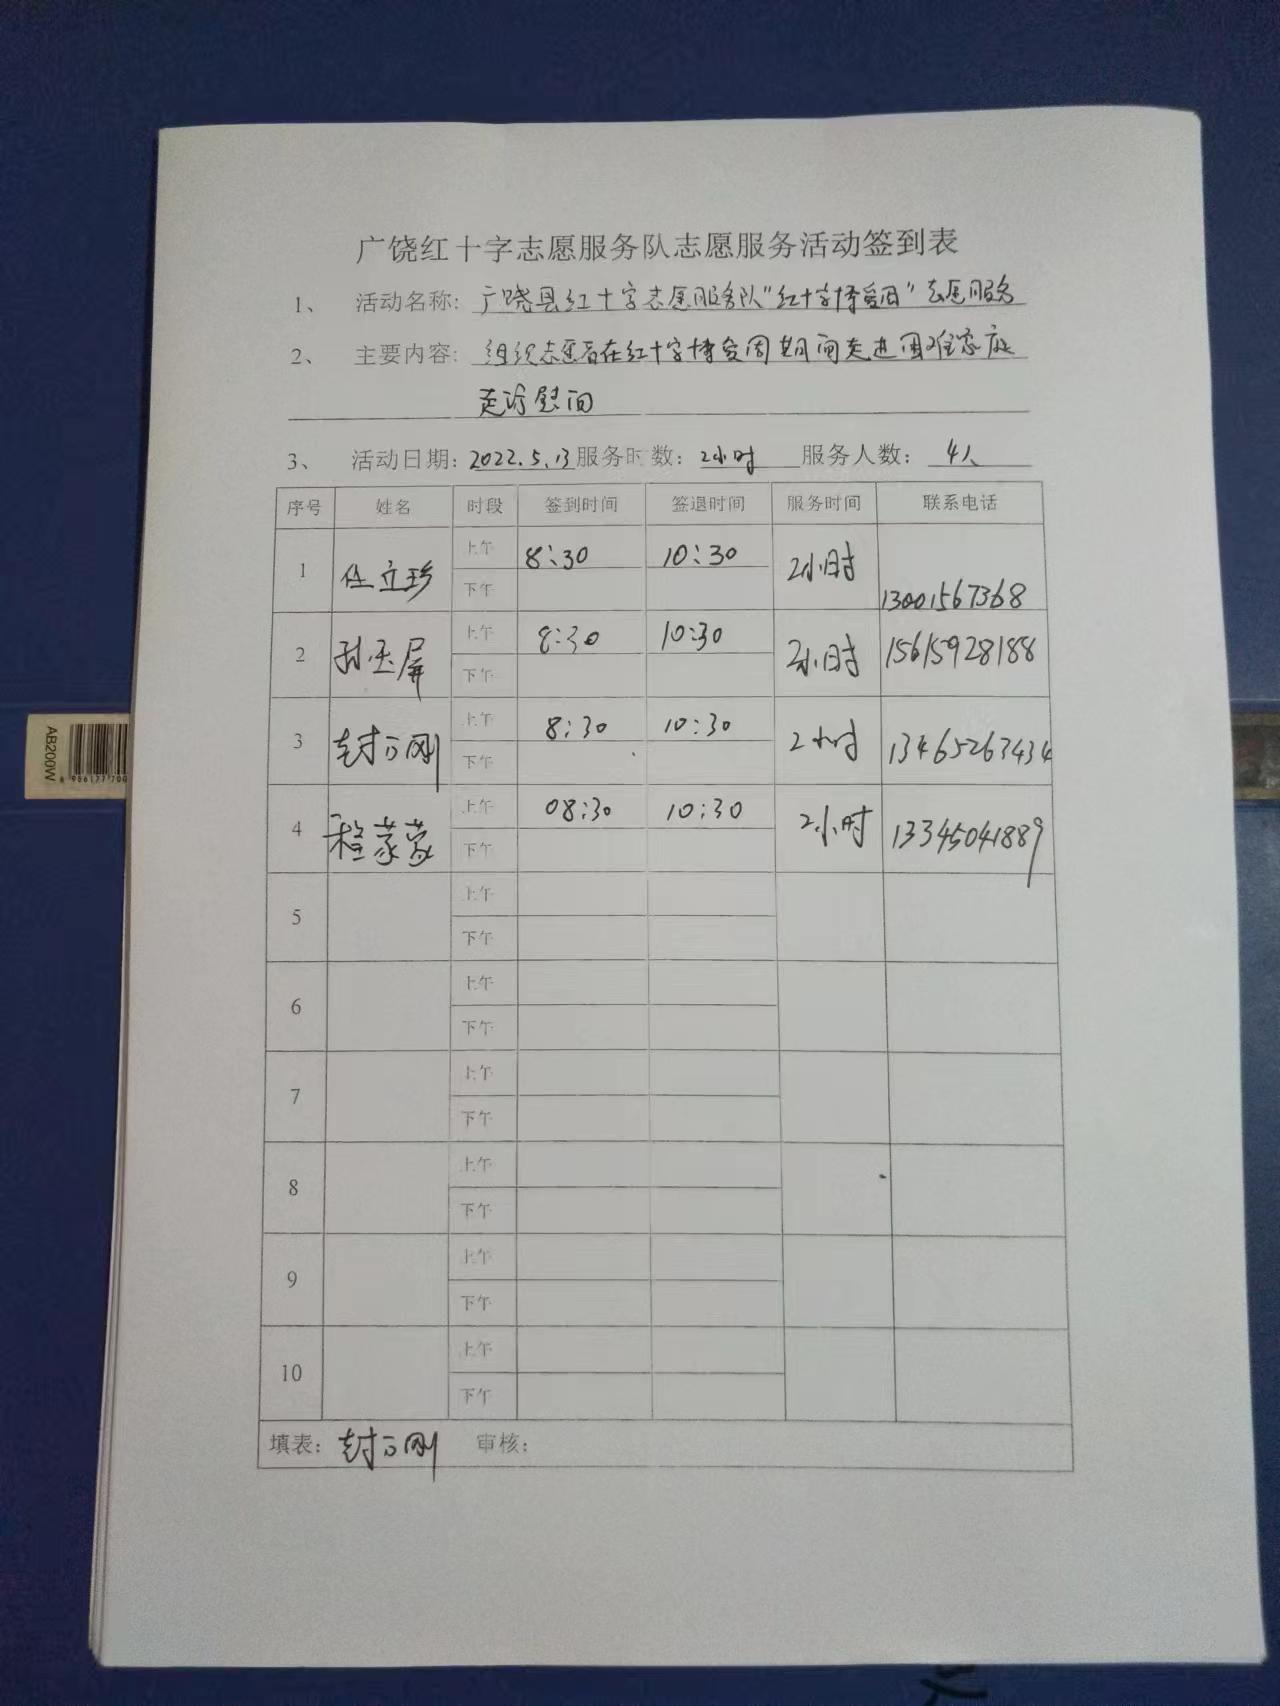 广饶红十字志愿服务队志愿服务活动签到表
1、 活动名称: 广饶县红十字志愿服务队"红十字博爱周"志愿服务
2、 主要内容: 组织志愿者在红十字博爱周期间走进困难家庭
走访慰问
3、 活动日期: 2022.5.13 服务时数: 2小时 服务人数: 4人
序号 姓名 时段 签到时间 签退时间 服务时间 联系电话
1 任立珍 上午 8:30 10:30 2小时 13001567368
下午
2 孙玉屏 上午 8:30 10:30 2小时 15615928188
下午
3 封之刚 上午 8:30 10:30 2小时 13465263434
下午
4 程蒙蒙 上午 08:30 10:30 2小时 13345041889
下午
5 上午
下午
6 上午
下午
7 上午
下午
8 上午
下午
9 上午
下午
10 上午
下午
填表: 封之刚 审核:
AB200W